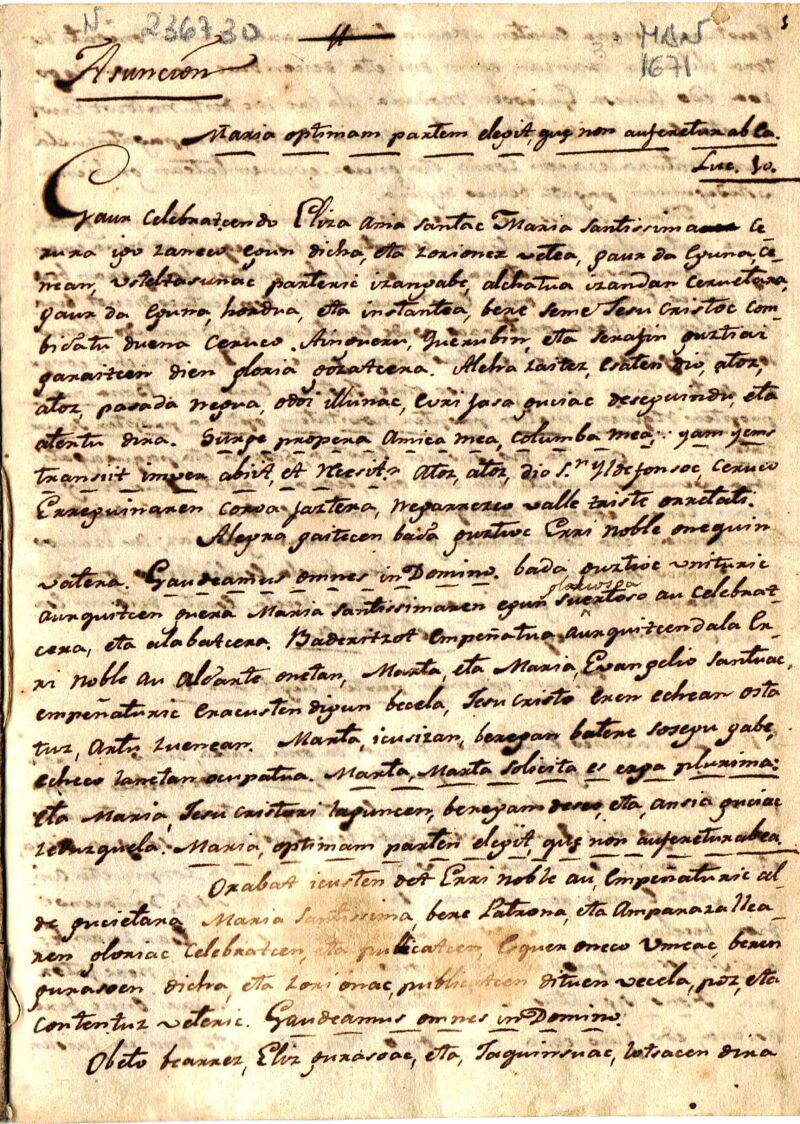 N. 236730
MAN
1671
Asuncion
Maria optimam partem elegit, quę non auferetur ab ea.
Luc. 10.
Gaur celebratcendo Eliza Ama santac Maria santissimaren Ce-
rura igo zaneco egun dicha, eta zorionez vetea, gaur da eguna, ce-
ñean, vsteltasunac parteric izangabe, alchatua izandan Ceruetara,
gaur da eguna, hordua, eta instantea, bere seme Jesu Cristoc com-
bidatu duena ceruco Aingueru, querubin, eta serafin guztiai
garaitcen dien gloria gozatcera. Alcha zaitez, esaten dio, atoz,
atoz, pasada negua, odoi illunac, euri jasa guciac deseguindu, eta
atertu dira. Surge propera Amica mea, columba mea, yam yems
transiit imver abiit, et recesit. Atoz, atoz, dio S.n Yldefonsoc, ceruco
Erreguinaren coroa jaztera, negarrezco valle triste orretati.
Alegra gaitecen bada guztioc Erri noble onequin
vatera. Gaudeamus omnes in Domino. bada guztioc vnituric
aurquitcen guera Maria santissimaren egun gloriosga suertoso au celebrat-
cera, eta alabatcera. Baderitzot empeñatua aurquitcendala Er-
ri noble au aldarte onetan, Marta, eta Maria, Evangelio santuac,
empeñaturic eracusten digun becela, Jesu Cristo eren echean osta
tuz, artu zuenean. Marta, icusizan, beregan batere sosegu gabe,
echeco lanetan ocupatua. Marta, Marta solicita es erga plurima:
eta Maria, Jesu Cristori laguncen, beregam deseo, eta, ansia guciac
zebuzquela. Maria, optimam partem elegit, quę non auferetur abea.
Orabat icusten det Erri noble au, empeñaturic al-
de gucietara Maria santissima, bere Patrona, eta Amparazallea-
ren gloriac celebratcen, eta publicatcen, Esquer oneco vmeac, beren
gurasoen dicha, eta zorionac, publicatcen dituen vecela, poz, eta
contentuz veteric. Gaudeamus omnes in Domino.
Obeto bearrez, Eliz gurasoac, eta, Jaquinsuac, lotsacen dira